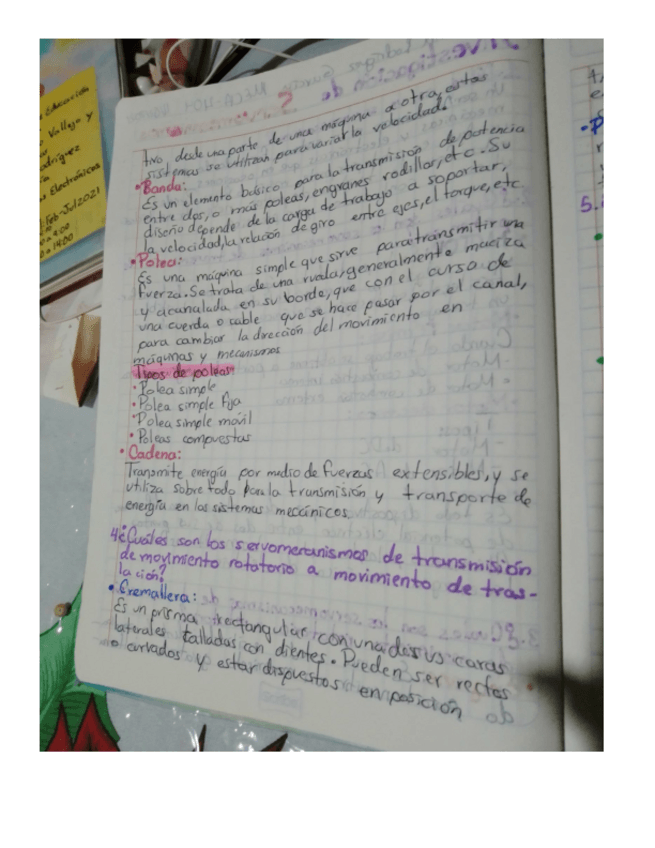 Educación
Vallejo y
Rodríguez
Electrónicos
Feb-Jul 2021
a 14:00
tivo, desde una parte de una máquina a otra, estos
sistemas se utilizan para variar la velocidad.
•Banda:
Es un elemento básico para la transmisión de potencia
entre dos, o más poleas, engranes rodillos, etc. Su
diseño depende de la carga de trabajo a soportar,
la velocidad, la relación de giro entre ejes, el torque, etc.
•Polea:
Es una máquina simple que sirve para transmitir una
fuerza. Se trata de una rueda, generalmente maciza
y acanalada en su borde, que con el curso de
una cuerda o cable que se hace pasar por el canal,
para cambiar la dirección del movimiento en
máquinas y mecanismos
Tipos de poleas:
•Polea simple
•Polea simple fija
•Polea simple móvil
•Poleas compuestas
•Cadena:
Transmite energía por medio de fuerzas extensibles, y se
utiliza sobre todo para la transmisión y transporte de
energía en los sistemas mecánicos.
4¿Cuáles son los servomecanismos de transmisión
de movimiento rotatorio a movimiento de tras-
lación?
•Cremallera:
Es un prisma rectangular con una de sus caras
laterales talladas con dientes. Pueden ser rectos
o curvados y estar dispuestos en posición ob
5.